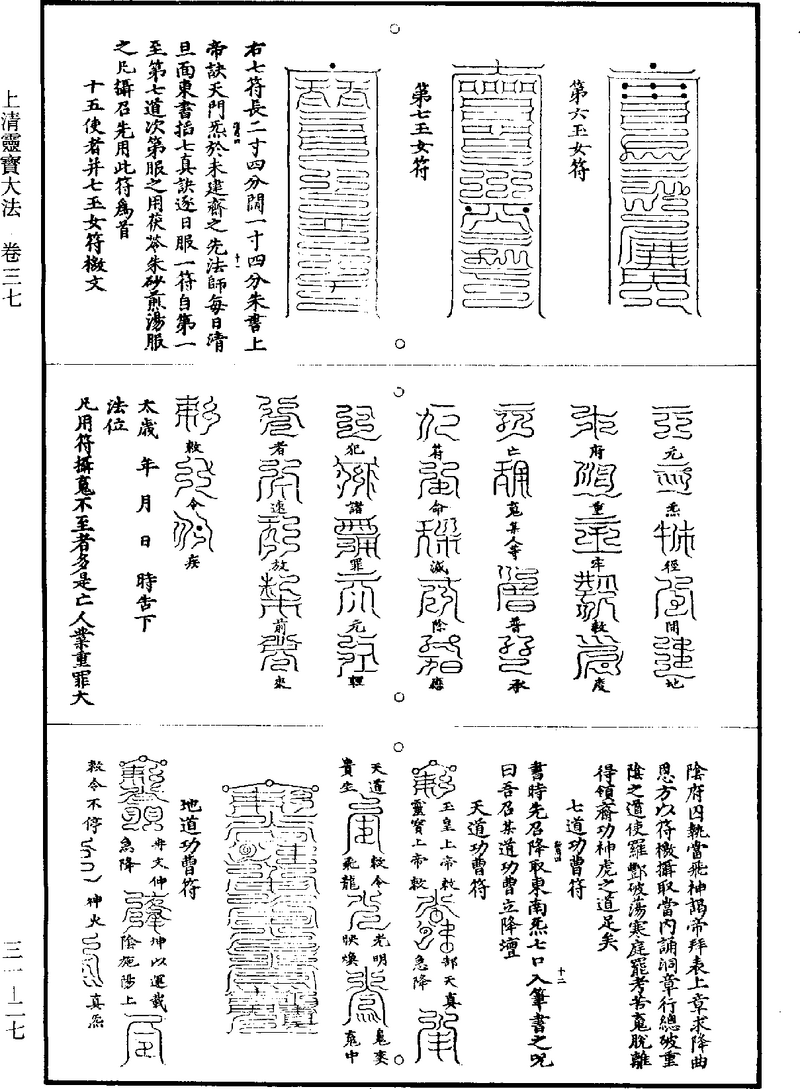 上清靈寶大法 卷三七
三一－二七
第六玉女符
第七玉女符
右七符長二寸四分闊一寸四分朱書上
帝訣天門炁於未建齋之先法師每日清
旦面東書掐七真訣逐日服一符自第一
至第七道次第服之用茯苓朱砂煎湯服
之凡攝召先用此符爲首
十五使者并七玉女符檄文
元炁徑開地
府重牢敕度
亡魂某人等普承
符命滅除愆
犯諸罪元經
者速放前來
敕令疾
太歲 年 月 日 時告下
法位
凡用符攝魂不至者多是亡人業重罪大
陰府囚執當飛神謁帝拜表上章求降曲
恩方以符檄攝取當內誦洞章行總破重
陰之道使羅酆破蕩寒庭罷考苦魂脫離
得領齋功神虎之道足矣
七道功曹符
書時先召降取東南炁七口入筆書之呪
十二
曰吾召某道功曹立降壇
天道功曹符
玉皇上帝敕
都天真
靈寶上帝敕
急降
天道
敕令
光明
魂奕
貴坐
飛龍
映煥
魂中
地道功曹符
坤以運載
急降
陰施陽上
敕令不停
神火
真炁